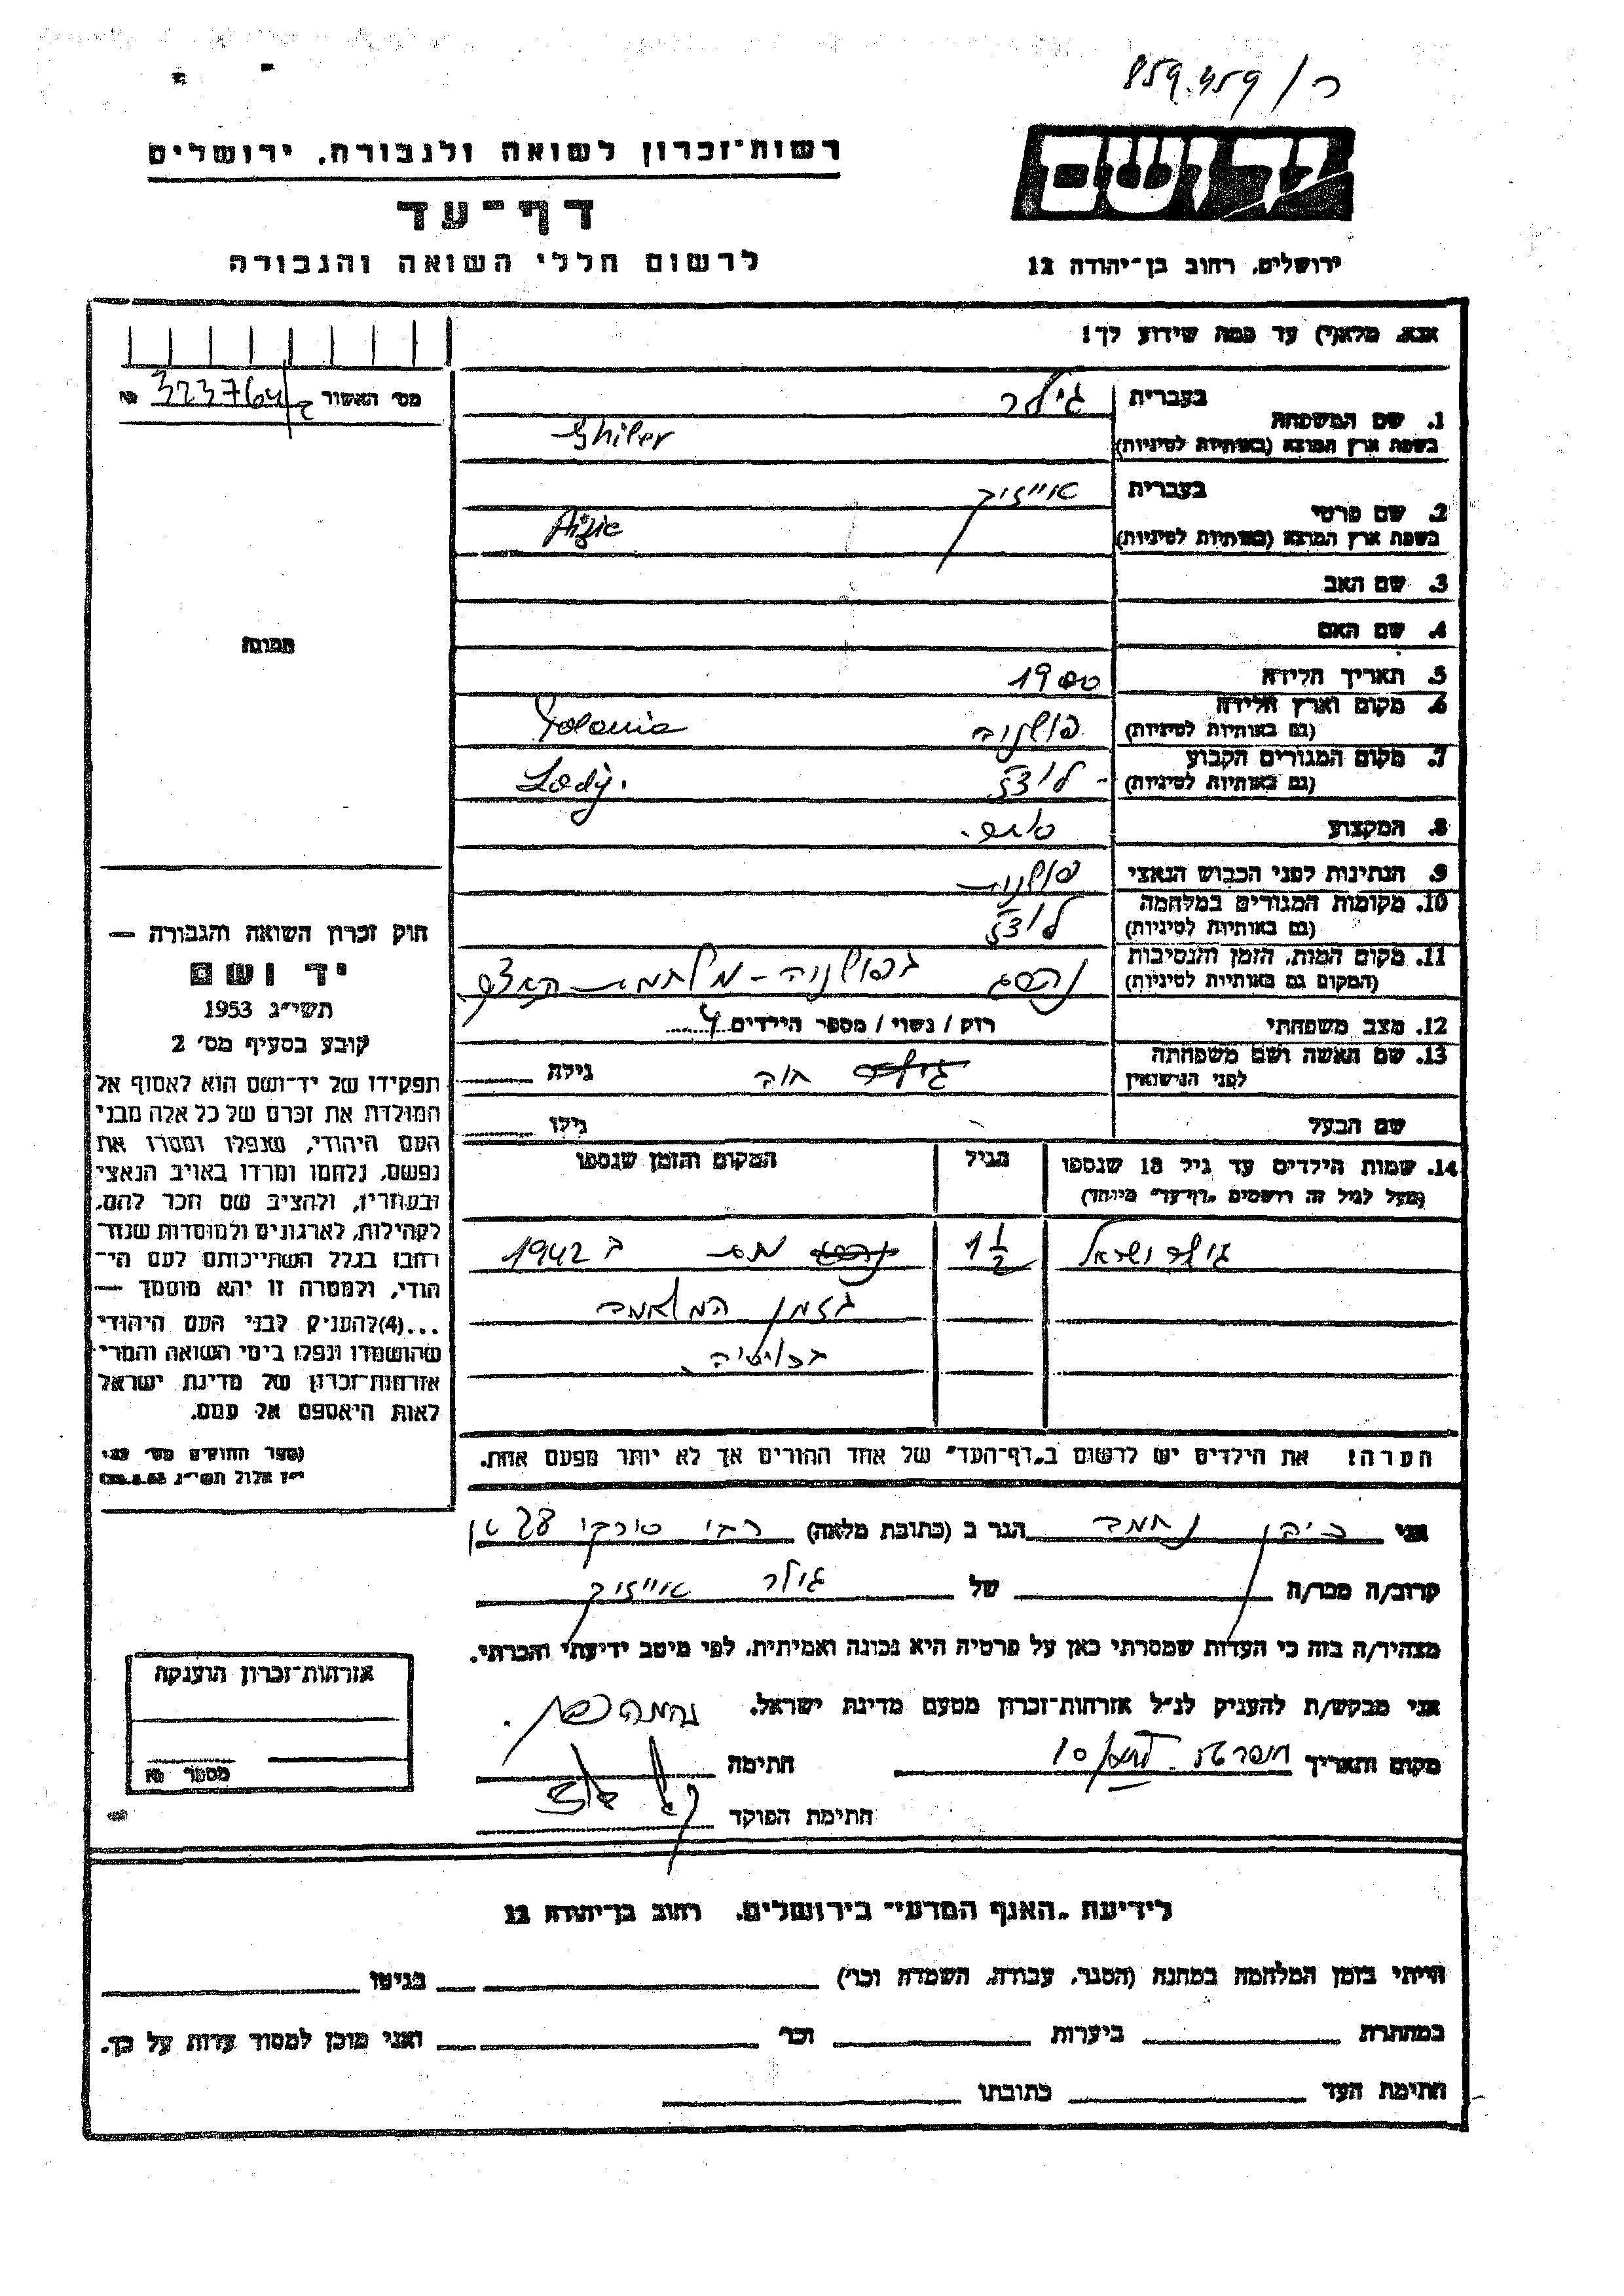 רשות־זכרון לשואה ולגבורה, ירושלים
דף־עד
לרשום חללי השואה והגבורה
ירושלים, רחוב בן־יהודה 12
אנא, מלא(י) עד כמה שידוע לך!
מס' האשור 323764
1. שם המשפחה
בעברית גילר
בשפת ארץ המוצא (באותיות לטיניות) Ghiler
2. שם פרטי
בעברית אייזיק
בשפת ארץ המוצא (באותיות לטיניות)
3. שם האב
4. שם האם
תמונה
5. תאריך הלידה 1900
6. מקום וארץ הלידה
(גם באותיות לטיניות) פולניה Polonia
7. מקום המגורים הקבוע
(גם באותיות לטיניות) לודז Lodj.
8. המקצוע
9. הנתינות לפני הכבוש הנאצי פולנית
10. מקומות המגורים במלחמה
(גם באותיות לטיניות) לודז
11. מקום המות, הזמן והנסיבות
(המקום גם באותיות לטיניות) נהרג בפולניה - מלחמת
12. מצב משפחתי רווק / נשוי / מספר הילדים 4
13. שם האשה ושם משפחתה
לפני הנישואין חוה גילה
שם הבעל גילו
14. שמות הילדים עד גיל 18 שנספו
(מעל לגיל זה רושמים "דף־עד" מיוחד)
הגיל
המקום והזמן שנספו
גילר ישראל 1 1/2 מת ב 1942
בזמן המלחמה
ברוסיה
הערה! את הילדים יש לרשום ב"דף־העד" של אחד ההורים אך לא יותר מפעם אחת.
חוק זכרון השואה והגבורה —
יד ושם
תשי״ג 1953
קובע בסעיף מס' 2
תפקידו של יד־ושם הוא לאסוף אל
המולדת את זכרם של כל אלה מבני
העם היהודי, שנפלו ומסרו את
נפשם, נלחמו ומרדו באויב הנאצי
ובעוזריו, ולהציב שם וזכר להם,
לקהילות, לארגונים ולמוסדות שנח־
רבו בגלל השתייכותם לעם הי־
הודי, ולמטרה זו יהא מוסמך —
...(4) להעניק לבני העם היהודי
שהושמדו ונפלו בימי השואה והמרי
אזרחות־זכרון של מדינת ישראל
לאות היאספם אל עמם.
אני נחמה הגר ב (כתובת מלאה)
קרוב/ה מכר/ה של גילר אייזיק
מצהיר/ה בזה כי העדות שמסרתי כאן על פרטיה היא נכונה ואמיתית, לפי מיטב ידיעתי והכרתי.
אני מבקש/ת להעניק לנ״ל אזרחות־זכרון מטעם מדינת ישראל.
מקום ותאריך חתימה
חתימת הפוקד
אזרחות־זכרון הוענקה
מספר
לידיעת "האגף המדעי" בירושלים, רחוב בן־יהודה 12
הייתי בזמן המלחמה במחנה (הסגר, עבודה, השמדה וכו') בגיטו
במחתרת ביערות וכו' ואני מוכן למסור עדות על כך.
חתימת העד כתובתו